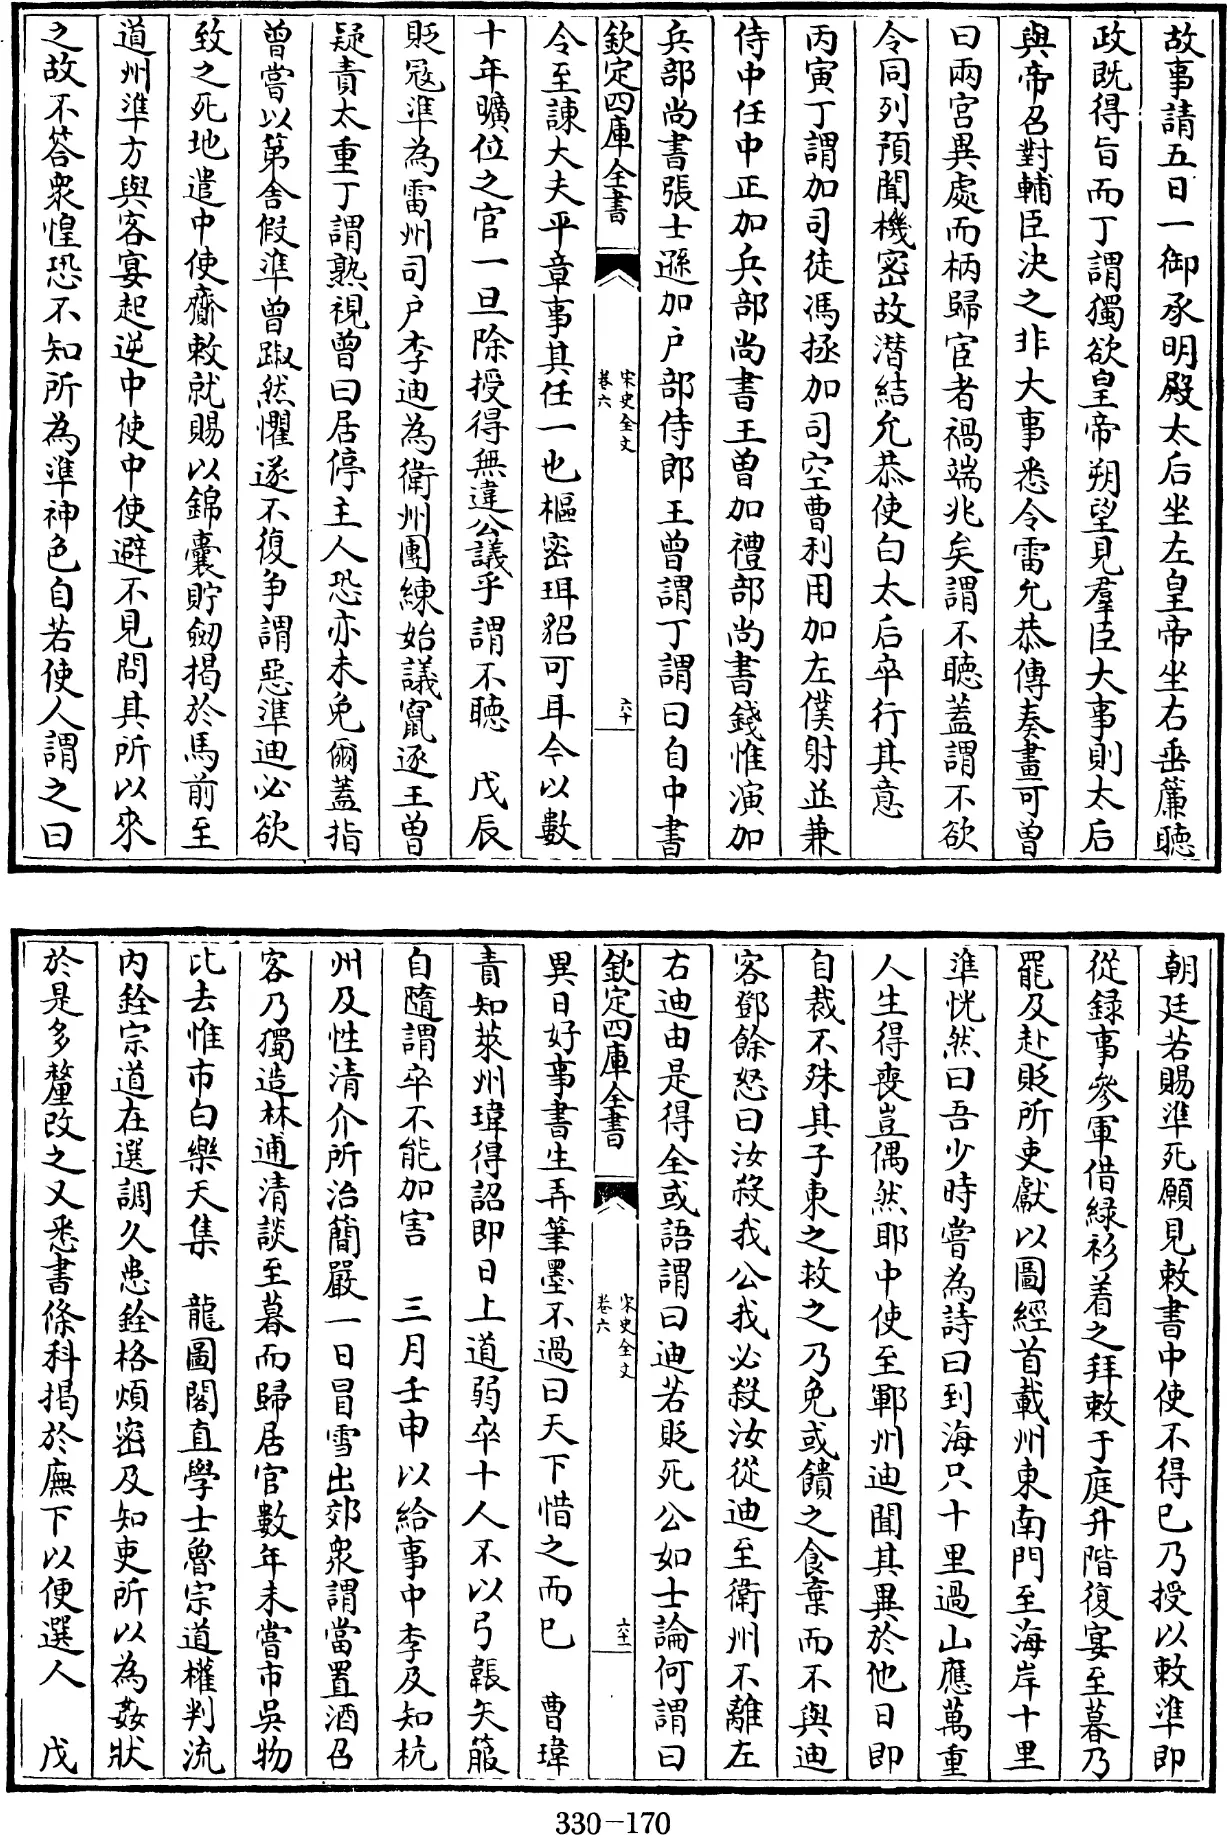 故事請五日一御承明殿太后坐左皇帝坐右垂簾聽
政既得旨而丁謂獨欲皇帝朔望見羣臣大事則太后
與帝召對輔臣決之非大事悉令雷允恭傳奏畫可曾
曰兩宮異處而柄歸宦者禍端兆矣謂不聽蓋謂不欲
令同列預聞機密故潛結允恭使白太后卒行其意
丙寅丁謂加司徒馮拯加司空曹利用加左僕射並兼
侍中任中正加兵部尚書王曾加禮部尚書錢惟演加
兵部尚書張士遜加户部侍郎王曾謂丁謂曰自中書
欽定四庫全書
宋史全文
卷六
六十
令至諫大夫平章事其任一也樞密珥貂可耳今以數
十年曠位之官一旦除授得無違公議乎謂不聽 戊辰
貶冦準為雷州司户李迪為衛州團練始議竄逐王曾
疑責太重丁謂熟視曾曰居停主人恐亦未免爾蓋指
曾嘗以第舍假準曾踧然懼遂不復争謂惡準迪必欲
致之死地遣中使齎敕就賜以錦囊貯劒揭於馬前至
道州準方與客宴起逆中使中使避不見問其所以來
之故不答衆惶恐不知所為準神色自若使人謂之曰
朝廷若賜準死願見敕書中使不得已乃授以敕準即
從録事參軍借緑衫着之拜敕于庭升階復宴至暮乃
罷及赴貶所吏獻以圖經首載州東南門至海岸十里
準恍然曰吾少時嘗為詩曰到海只十里過山應萬重
人生得喪豈偶然耶中使至鄆州迪聞其異於他日即
自裁不殊其子東之救之乃免或饋之食棄而不與迪
客鄧餘怒曰汝殺我公我必殺汝從迪至衛州不離左
右迪由是得全或語謂曰迪若貶死公如士論何謂曰
欽定四庫全書
宋史全文
卷六
六十一
異日好事書生弄筆墨不過曰天下惜之而已 曹瑋
責知萊州瑋得詔即日上道弱卒十人不以弓韔矢箙
自隨謂卒不能加害 三月壬申以給事中李及知杭
州及性清介所治簡嚴一日冒雪出郊衆謂當置酒召
客乃獨造林逋清談至暮而歸居官數年未嘗市吳物
比去惟市白樂天集 龍圖閣直學士魯宗道權判流
内銓宗道在選調久患銓格煩密及知吏所以為姦狀
於是多釐改之又悉書條科揭於廡下以便選人 戊
330-170